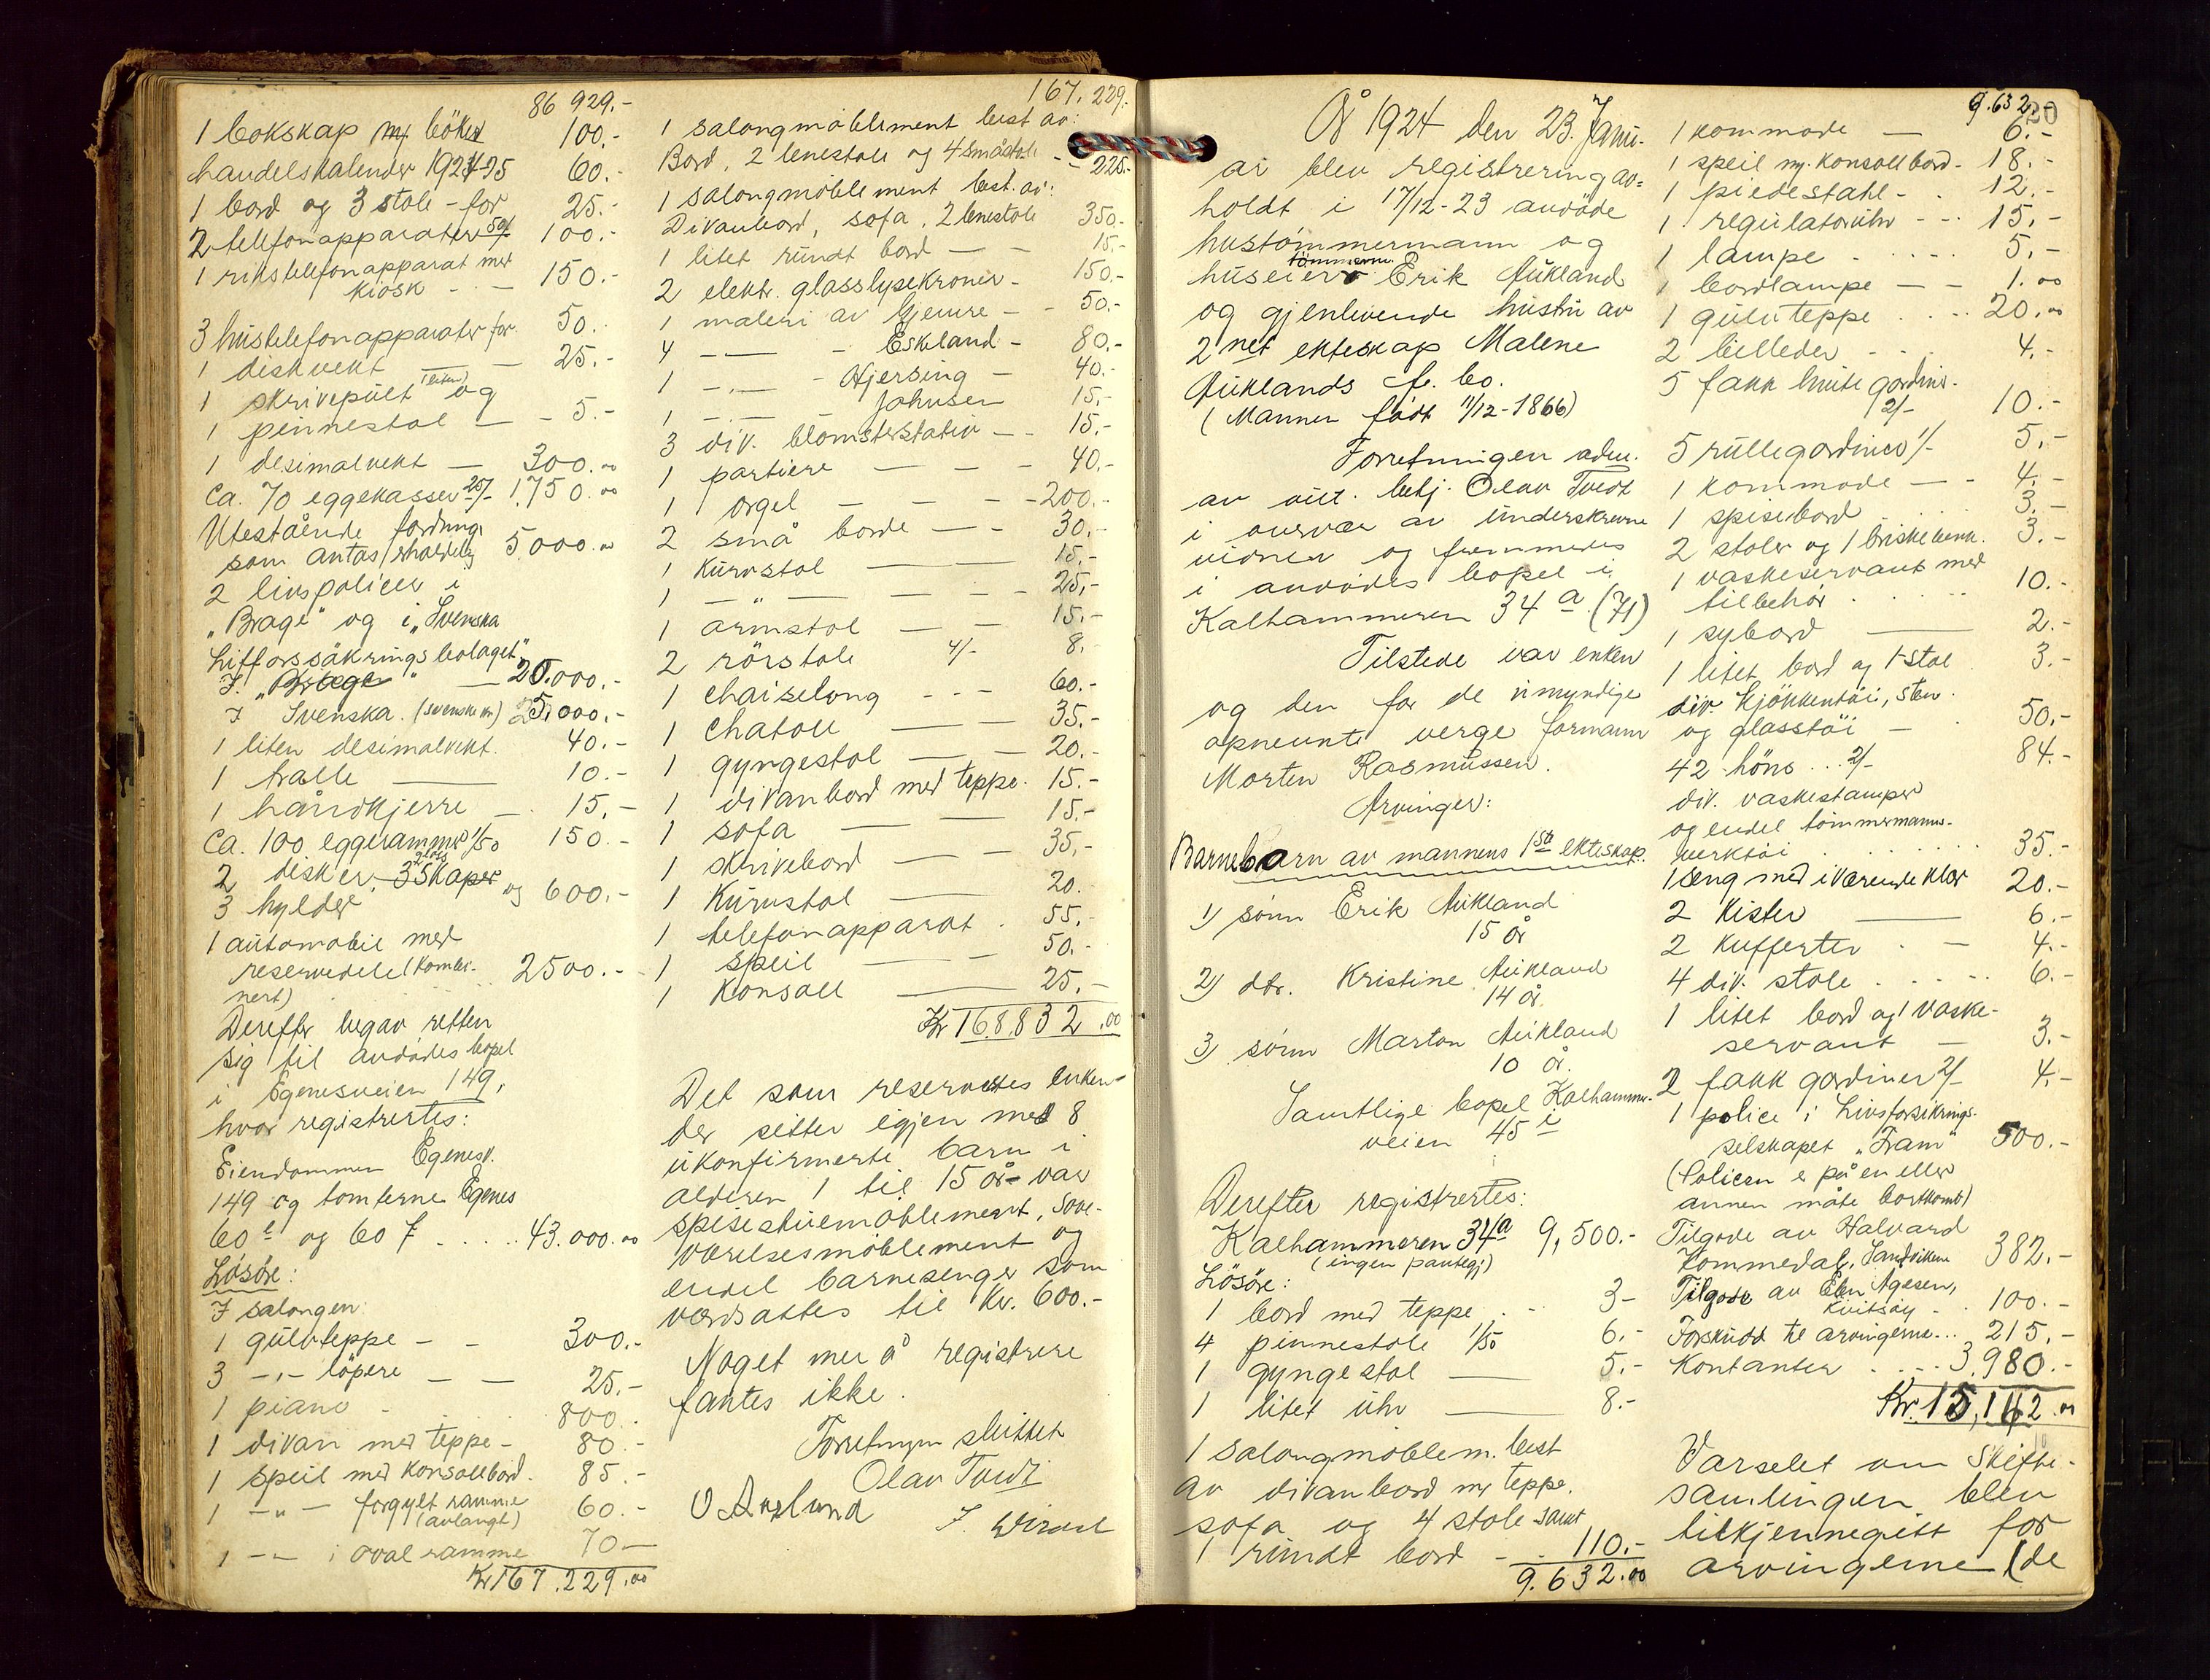 86 929.-
1 bokskap m/ bøker 100.-
handelskalender 1924-25 60.-
1 bord og 3 stole - for 25.-
2 telefonapparater 50/- 100.-
1 rikstelefonapparat med
kiosk - - 150.-
3 hustelefonapparater for 50.-
1 diskvekt — - 25.-
1 skrivepult (liten) og
1 pinnestol — - 5.-
1 desimalvekt — 300.00
Ca. 70 eggekasser 25/- 1.750.00
Utestående fordring
som antas erholdelig 5000.00
2 livspolicer i
"Brage" og i "Svenska
Lifförsäkringsbolaget"
I. "Brage" — 20.000.-
I Svenska. (svenske kr) 25,000.-
1 liten desimalvekt. 40.-
1 tralle — 10.-
1 håndkjerre — 15.-
Ca. 100 eggerammer 1/50 150.-
2 disker, 3 skaper og
3 hylder 600.-
1 automobil med
reservedele (kombi-
nert) 2500.-
Derefter begav retten
sig til avdødes bopel
i Egenesveien 149,
hvor registrertes:
Eiendommen Egenesv.
149 og tomterne Egenes
60 e og 60 f .... 43.000.00
Løsøre:
I salongen:
1 gulvteppe - - 300.-
3 -"- løpere - - 25.-
1 piano - 800.-
1 divan med teppe - 80.-
1 speil med konsollbord - 85.-
1 -"- forgylt ramme
(avlangt) 60.-
1 -"- i oval ramme 70.-
Kr 167.229.00
167. 229.-
1 salongmøblement best av:
Bord, 2 lenestole og 4 småstole - - 225.-
1 salongmøblement best. av:
Divanbord, sofa, 2 lenestole 350.-
1 litet rundt bord — - 15.-
2 elektr. glasslysekroner - 150.-
1 maleri av Gjemre - - 50.-
4 -"- - Eskeland - 80.-
1 -"- - Hjersing - 40.-
1 -"- Johnsen 15.-
3 div. blomsterstativ - - 15.-
1 portiere — - - 40.-
1 orgel — - - 200.-
2 små borde — - 30.-
1 kurvstol — — 15.-
1 -"- — - - 25.-
1 armstol — - 15.-
2 rørstole 4/- 8.-
1 chaiselong - - - 60.-
1 chatoll — 35.-
1 gyngestol — - 20.-
1 divanbord med teppe. 15.-
1 sofa — — 15.-
1 skrivebord — — 35.-
1 Kurvstol — 20.
1 telefonapparat . 55.-
1 speil — - 50.-
1 Konsoll — 25.-
Kr 168.832.00
Det som reservertes enken
der sitter igjen med 8
ukonfirmerte barn i
alderen 1 til 15 år var
spisestuemøblement, sove-
værelsesmøblement og
endel barnesenger som
værdsattes til Kr. 600.-
Noget mer å registrere
fantes ikke.
Forretningen sluttet
Olav Tvedt
År 1924 den 23. Janu-
ar blev registrering av-
holdt i 17/12-23 avdøde
hustømmermann og
huseier Erik Aukland
og gjenlevende hustru av
2net ekteskap Malene
Auklands f. bo.
(Mannen født 11/12-1866)
Forretningen adm.
av aut. betj. Olav Tvedt
i overvær av underskrevne
vidner og fremmedes
i avdødes bopel i
Kalhammeren 34 a (71)
Tilstede var enken
og den for de umyndige
opnevnte verge formann
Morten Rasmussen.
Arvinger:
Barnebarn av mannens 1ste ekteskap.
1) sønn Erik Aukland
15 år
2) dtr. Kristine Aukland
14 år.
3) sønn Marton Aukland
10 år.
Samtlige bopel Kalhammer-
veien 45 i
Derefter registrertes:
Kalhammeren 34a 9,500.-
(ingen pantegj)
Løsøre:
1 bord med teppe . - 3-
4 pinnestole 1/50 6.-
1 gyngestol — 5.-
1 litet uhr — 8.-
1 salongmøblem. best
av divanbord m/ teppe,
sofa og 4 stole samt
1 rundt bord - . 110.-
9.632.00
9.632.- 20
1 kommode — 6.-
1 speil m/ konsollbord - 18.-
1 piedestahl - . 12.-
1 regulatoruhr - - - 15.-
1 lampe ..... 5.-
1 bordlampe — - 1.00
1 gulvteppe .... 20.00
2 billeder - . - 4.-
5 fakk hvite gardiner -
2/- 10.-
5 rullegardiner 1/- 5.-
1 kommode — - 4.-
1 spisebord 3.-
2 stoler og 1 briskebenk. 3.-
1 vaskeservant med
tilbehør ..... 10.-
1 sybord — 2.-
1 litet bord og 1 stol 3.-
div. kjøkkentøi, sten-
og glasstøi — . 50.-
42 høns ... 2/- 84.-
div. vaskestamper
og endel tømmermanns-
verktøi ..... 35.-
1 seng med iværende klær 20.-
2 Kister — 6.-
2 Kufferter . - 4.-
4 div. stole .... 6.-
1 litet bord og 1 vaske-
servant — 3.-
2 fakk gardiner 2/- 4.-
1 police i Livsforsikrings-
selskapet "Fram" 500.-
(Policen er på en eller
annen måte bortkomt)
Tilgode av Halvard
Kommedal, Sandviken 382.-
Tilgode av Elen Agesen,
Kvitsøy - . 100.-
Forskudd til arvingerne... 215.-
Kontanter .... 3.980.-
Kr. 15,162.00
Varselet om Skifte-
samlingen blev
tilkjennegitt for
arvingerne (de